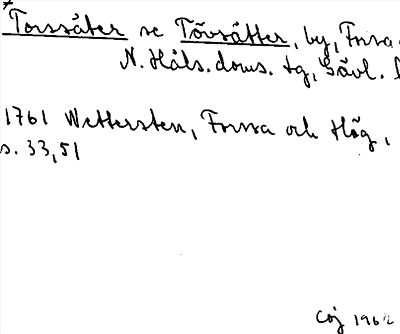 *Torssäter se Tövsätter, by, Forsa
N. Häls. doms. tg, Gävl. l
1761 Wettersten, Forssa och Hög,
s. 33,51
COJ 1962